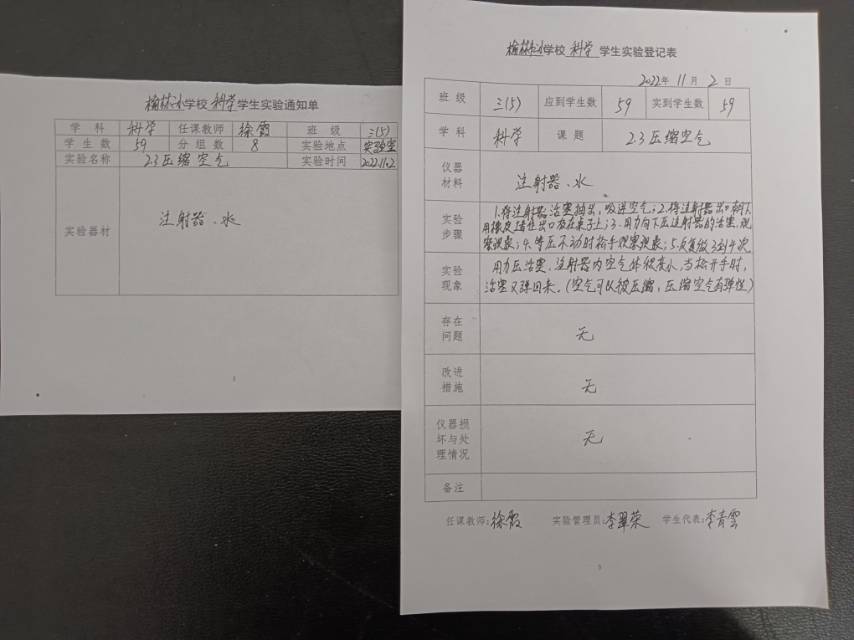 榆林小学校 科学 学生实验通知单
学 科 科学 任课教师 徐霞 班 级 三(5)
学 生 数 59 分 组 数 8 实验地点 实验室
实验名称 2.3压缩空气 实验时间 2022.11.2
实验器材 注射器、水
榆林小学校 科学 学生实验登记表
2022年 11月 2日
班 级 三(5) 应到学生数 59 实到学生数 59
学 科 科学 课 题 2.3压缩空气
仪器
材料
注射器、水
实验
步骤
1.将注射器活塞抽出,吸进空气;2.将注射器出口朝下
用橡皮堵住出口放在桌子上;3.用力向下压注射器的活塞,观
察现象;4.等压不动时松手观察现象;5.反复做3到4次
实验
现象
用力压活塞,注射器内空气体积变小,当松开手时,
活塞又弹回来。(空气可以被压缩,压缩空气有弹性)
存在
问题
无
改进
措施
无
仪器损
坏与处
理情况
无
备注
任课教师:徐霞 实验管理员:李翠荣 学生代表:李青雲